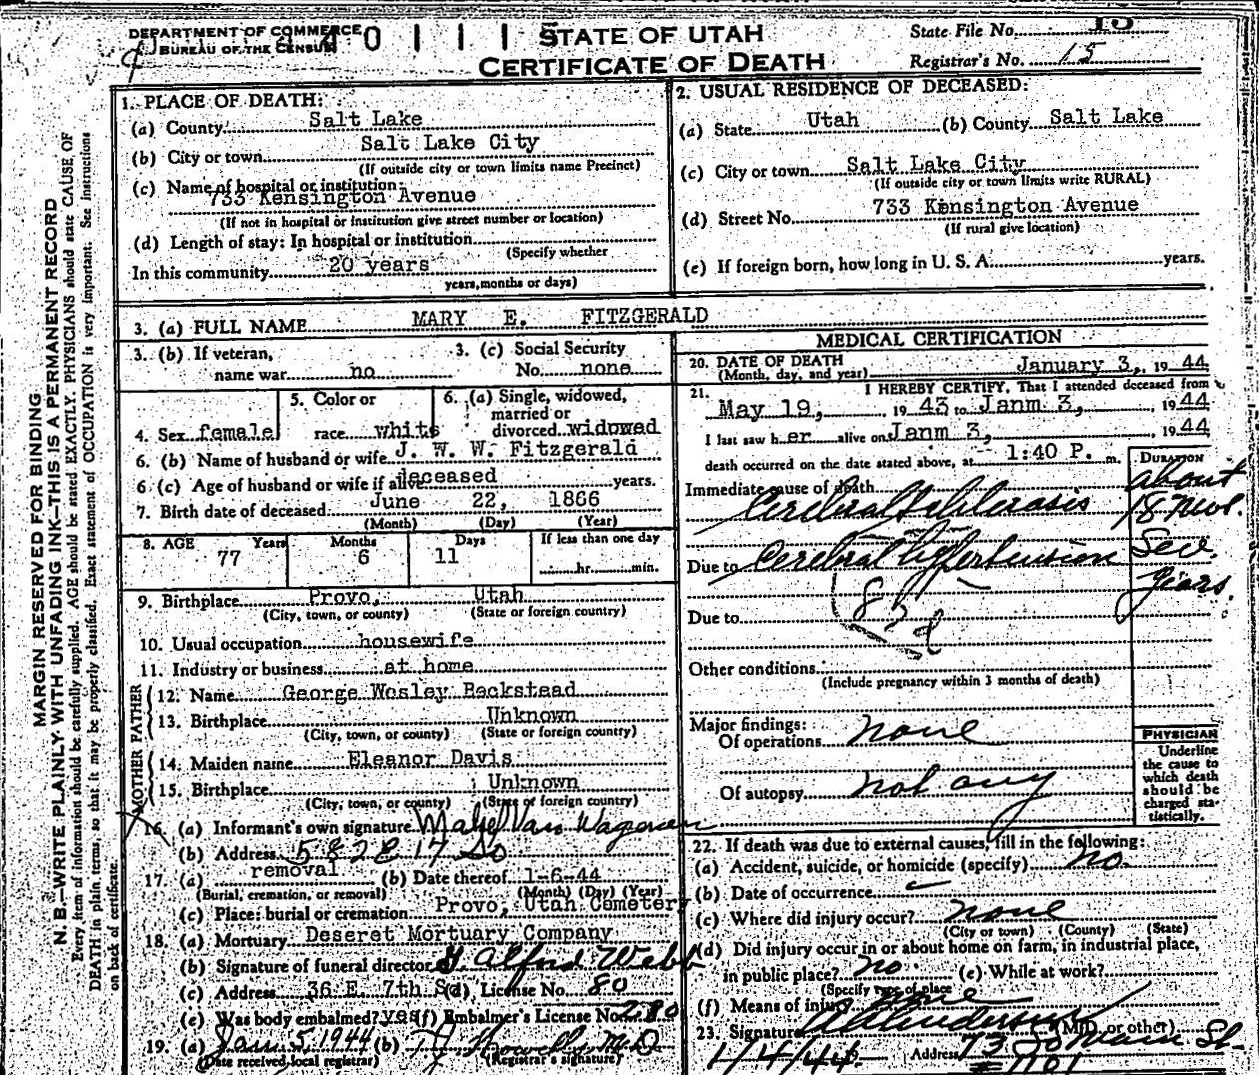 DEPARTMENT OF COMMERCE
BUREAU OF THE CENSUS
STATE OF UTAH
CERTIFICATE OF DEATH
State File No. 15
Registrar's No. 15
MARGIN RESERVED FOR BINDING
N. B.—WRITE PLAINLY WITH UNFADING INK—THIS IS A PERMANENT RECORD
Every item of information should be carefully supplied. AGE should be stated EXACTLY. PHYSICIANS should state CAUSE OF
DEATH in plain terms, so that it may be properly classified. Exact statement of OCCUPATION is very important. See instructions
on back of certificate.
1. PLACE OF DEATH:
(a) County Salt Lake
(b) City or town Salt Lake City
(If outside city or town limits name Precinct)
(c) Name of hospital or institution:
733 Kensington Avenue
(If not in hospital or institution give street number or location)
(d) Length of stay: In hospital or institution
(Specify whether
In this community 20 years
years, months or days)
2. USUAL RESIDENCE OF DECEASED:
(a) State Utah (b) County Salt Lake
(c) City or town Salt Lake City
(If outside city or town limits write RURAL)
(d) Street No. 733 Kensington Avenue
(If rural give location)
(e) If foreign born, how long in U. S. A. years.
3. (a) FULL NAME MARY E. FITZGERALD
3. (b) If veteran,
name war no
3. (c) Social Security
No. none
4. Sex female
5. Color or
race white
6. (a) Single, widowed,
married or
divorced widowed
6. (b) Name of husband or wife J. W. W. Fitzgerald
6 (c) Age of husband or wife if alive deceased years.
7. Birth date of deceased June 22, 1866
(Month) (Day) (Year)
8. AGE Years Months Days If less than one day
77 6 11 hr. min.
9. Birthplace Provo, Utah
(City, town, or county) (State or foreign country)
10. Usual occupation housewife
11. Industry or business at home
FATHER
12. Name George Wesley Beckstead
13. Birthplace Unknown
(City, town, or county) (State or foreign country)
MOTHER
14. Maiden name Eleanor Davis
15. Birthplace Unknown
(City, town, or county) (State or foreign country)
16. (a) Informant's own signature Mabel Van Wagenen
(b) Address 582 E 17 So
17. (a) removal (b) Date thereof 1-6-44
(Burial, cremation, or removal) (Month) (Day) (Year)
(c) Place: burial or cremation Provo, Utah Cemetery
18. (a) Mortuary Deseret Mortuary Company
(b) Signature of funeral director Alford Webb
(c) Address 36 E. 7th So (d) License No. 80
(e) Was body embalmed? yes (f) Embalmer's License No. 280
19. (a) Jan 5 1944 (b) M.D
(Date received local registrar) (Registrar's signature)
MEDICAL CERTIFICATION
20. DATE OF DEATH January 3, 1944
(Month, day, and year)
21. I HEREBY CERTIFY, That I attended deceased from
May 19, 1943 to Janm 3, 1944
I last saw her alive on Janm 3, 1944
death occurred on the date stated above, at 1:40 P. m.
DURATION
Immediate cause of death about
Cerebral Sclerosis 18 Mos.
Due to Cerebral Hypertension Sev.
years.
Due to
Other conditions
(Include pregnancy within 3 months of death)
Major findings:
Of operations none
Of autopsy not any
PHYSICIAN
Underline
the cause to
which death
should be
charged sta-
tistically.
22. If death was due to external causes, fill in the following:
(a) Accident, suicide, or homicide (specify) no
(b) Date of occurrence
(c) Where did injury occur? none
(City or town) (County) (State)
(d) Did injury occur in or about home on farm, in industrial place,
in public place? no (e) While at work?
(Specify type of place
(f) Means of injury none
23. Signature (M.D. or other)
1/4/44 Address 73 So Main St.
#1101